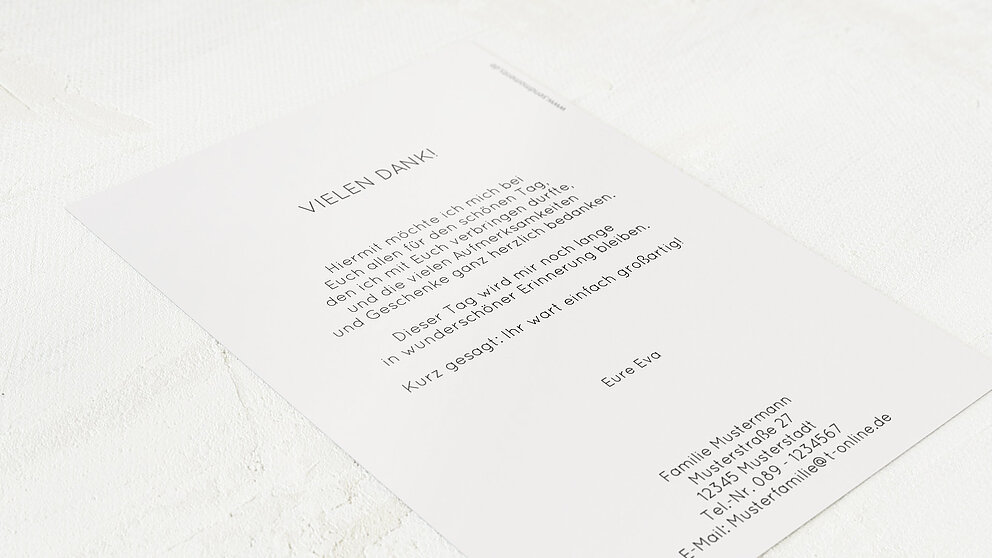 www.sendmoments.de
VIELEN DANK!
Hiermit möchte ich mich bei
Euch allen für den schönen Tag,
den ich mit Euch verbringen durfte,
und die vielen Aufmerksamkeiten
und Geschenke ganz herzlich bedanken.
Dieser Tag wird mir noch lange
in wunderschöner Erinnerung bleiben.
Kurz gesagt: Ihr wart einfach großartig!
Eure Eva
Familie Mustermann
Musterstraße 27
12345 Musterstadt
Tel.-Nr. 089 - 1234567
E-Mail: Musterfamilie@t-online.de